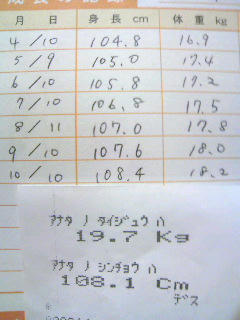 成長の記録
月 日 身長 cm 体重 kg
4/10 104.8 16.9
5/9 105.0 17.4
6/10 105.8 17.2
7/10 106.8 17.5
8/11 107.0 17.8
9/10 107.6 18.0
10/10 108.4 18.2
アナタ ノ タイジュウ ハ
19.7 Kg
アナタ ノ シンチョウ ハ
108.1 Cm
デス